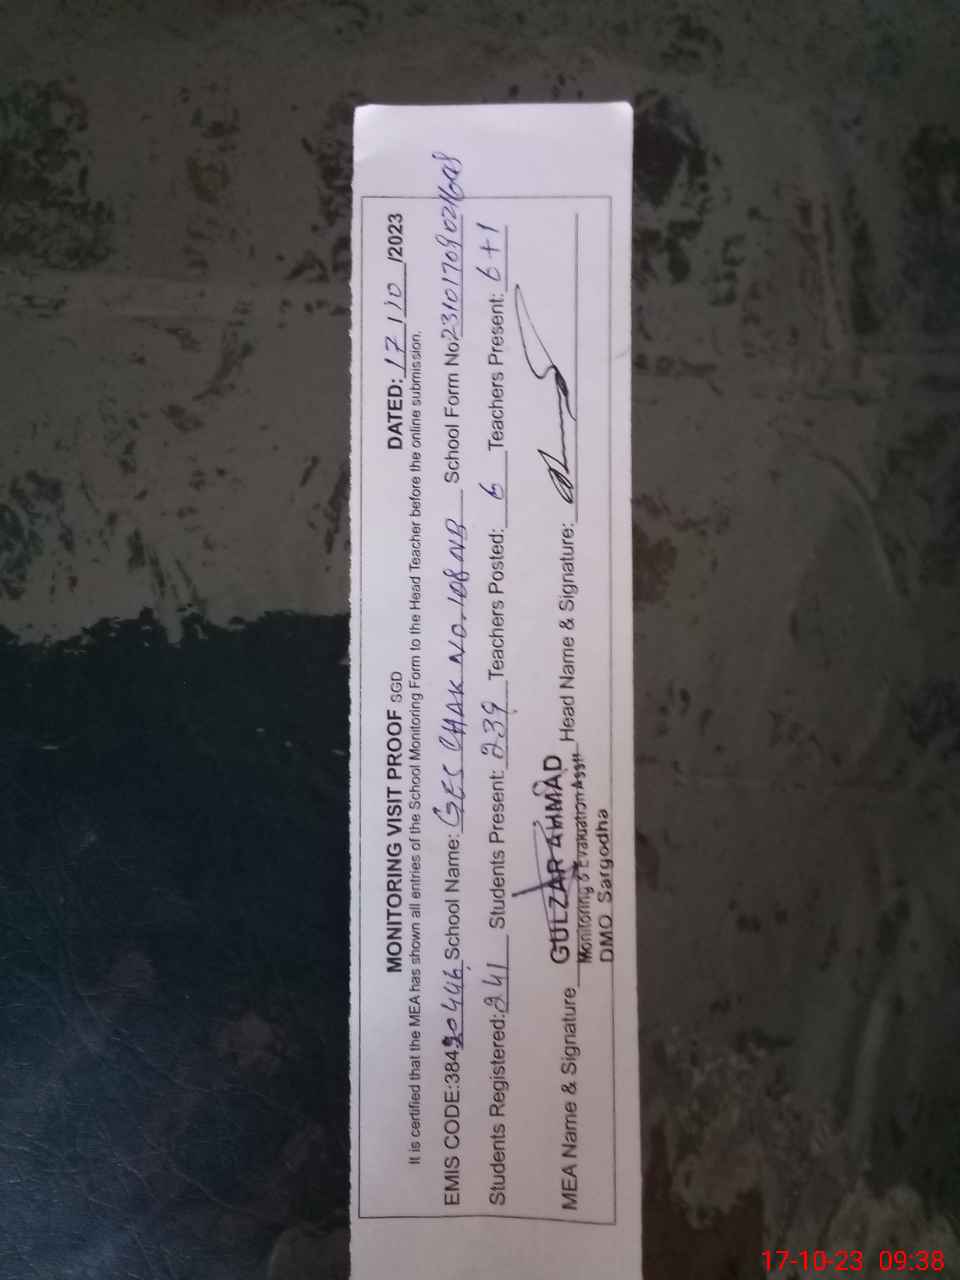 MONITORING VISIT PROOF SGD DATED: 17/10/2023
It is certified that the MEA has shown all entries of the School Monitoring Form to the Head Teacher before the online submission.
EMIS CODE:38420446 School Name: GES CHAK NO.108 NB School Form No
Students Registered: 241 Students Present: 239 Teachers Posted: 6 Teachers Present: 6+1
MEA Name & Signature GULZAR AHMAD Head Name & Signature:
Monitoring & Evaluation Asstt
DMO Sargodha
17-10-23 09:38